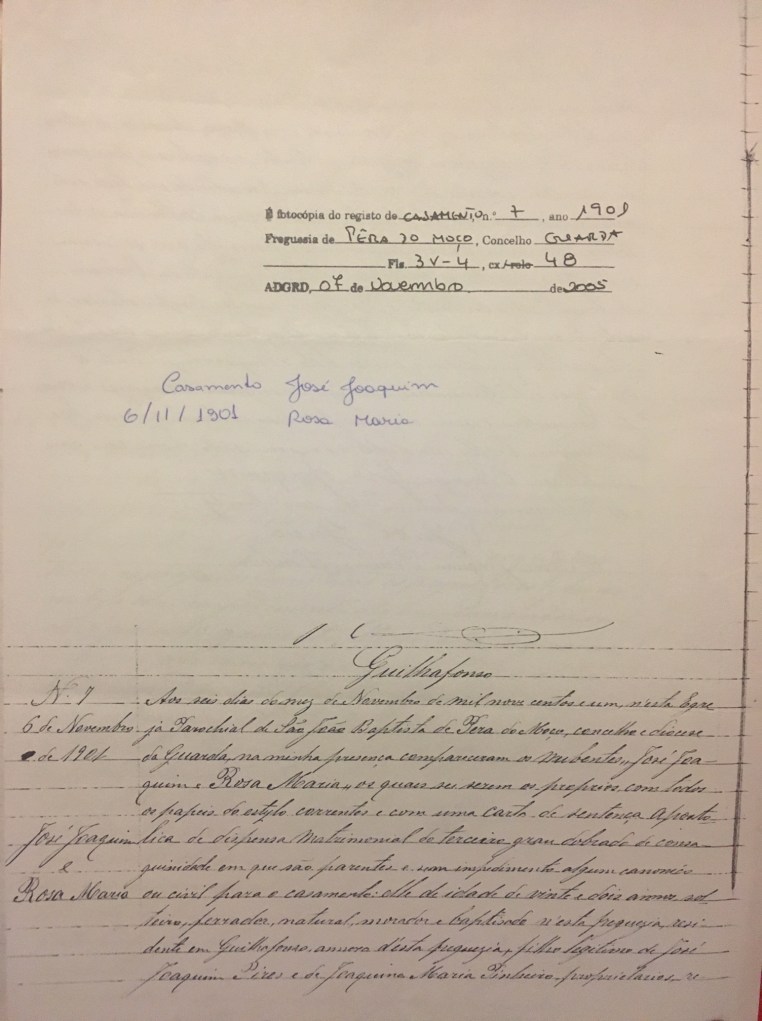 É fotocópia do registo de CASAMENTO, n.º 7, ano 1901
Freguesia de PÊRA DO MOÇO, Concelho GUARDA
Fls. 3V-4, cx/rolo 48
ADGRD, 07 de Novembro de 2005
Casamento José Joaquim
6/11/1901 Rosa Maria
Guilhafonso
N.º 7
6 de Novembro
de 1901
José Joaquim
e
Rosa Maria
Aos seis dias do mez de Novembro de mil nove centos e um, n'esta Egre
ja Parochial de São João Baptista de Pera do Moço, concelho e diocese
da Guarda, na minha presença compareceram os nubentes, José Joa-
quim e Rosa Maria, os quaes sei serem os proprios, com todos
os papeis do estylo correntes e com uma carta de sentença Aposto-
lica de dispensa matrimonial do terceiro grau dobrado de consa-
guinidade em que são parentes e sem impedimento algum canonico
ou civil para o casamento: elle de idade de vinte e dois annos, sol-
teiro, ferrador, natural, morador e baptisado n'esta freguezia, resi-
dente em Guilhafonso, annexa d'esta freguezia, filho legitimo de José
Joaquim Pires e de Joaquina Maria Pinheiro, proprietarios, re